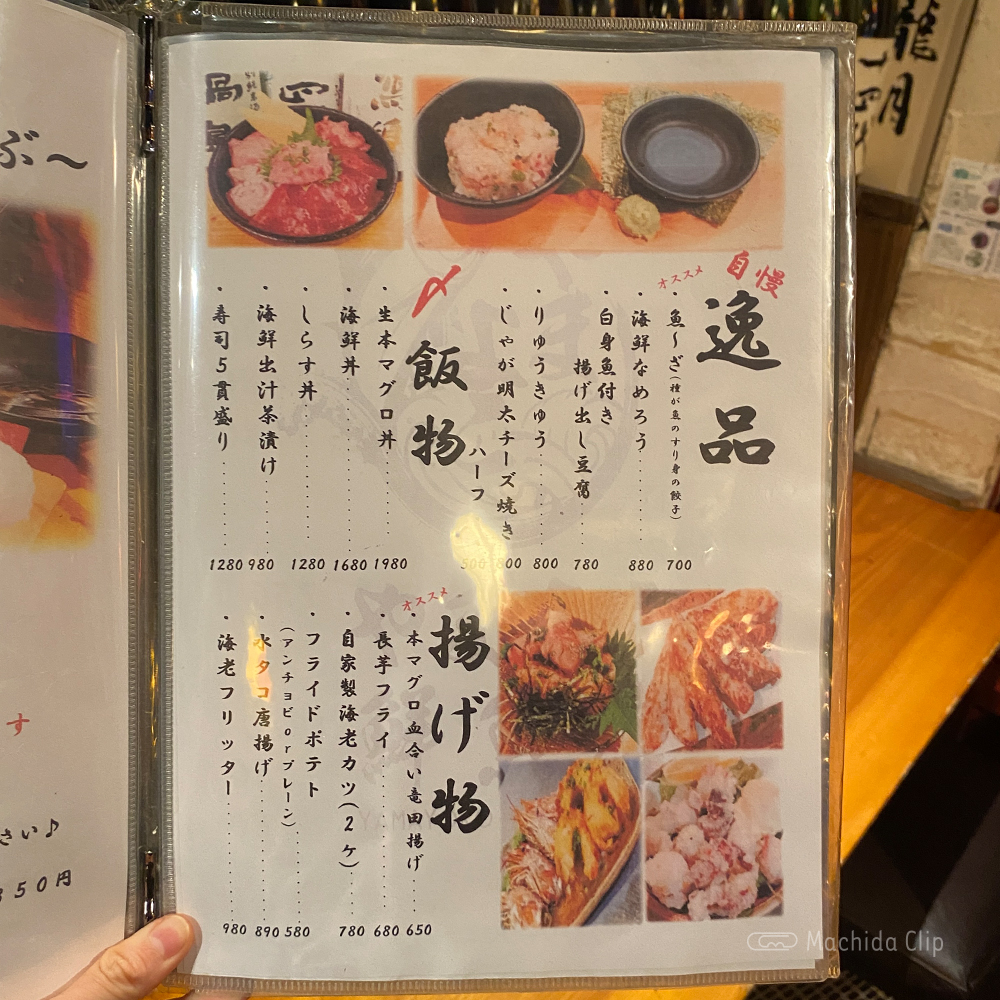 自慢
逸品
オススメ
・魚〜ざ(種が魚のすり身の餃子) 700
・海鮮なめろう 880
・白身魚付き
揚げ出し豆腐 780
・りゅうきゅう 800
・じゃが明太チーズ焼き 800
ハーフ 500
〆飯物
・生本マグロ丼 1980
・海鮮丼 1680
・しらす丼 1280
・海鮮出汁茶漬け 980
・寿司5貫盛り 1280
揚げ物
オススメ
・本マグロ血合い竜田揚げ 650
・長芋フライ 680
・自家製海老カツ(2ケ) 780
・フライドポテト
(アンチョビorプレーン) 580
・水タコ唐揚げ 890
・海老フリッター 980
ぶ〜
す
さい♪
350円
Machida Clip